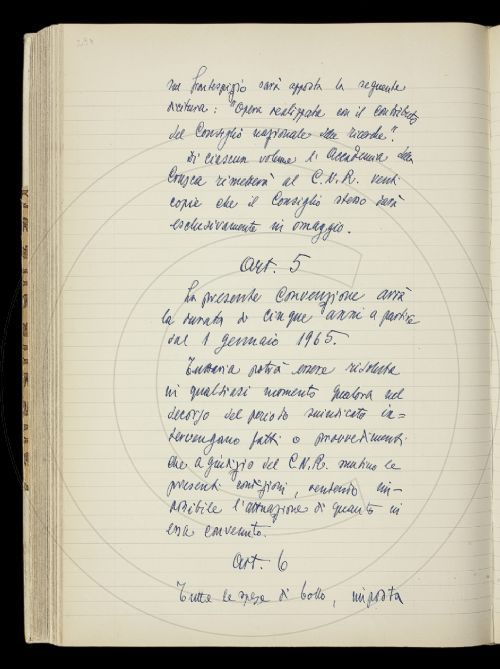 sul frontespizio sarà apposta la seguente
dicitura: "Opera realizzata con il contributo
del Consiglio nazionale delle ricerche".
Di ciascun volume l'Accademia della
Crusca rimetterà al C.N.R. venti
copie che il Consiglio stesso darà
esclusivamente in omaggio.
Art. 5
La presente Convenzione avrà
la durata di cinque anni a partire
dal 1 gennaio 1965.
Tuttavia potrà essere risoluta
in qualsiasi momento qualora nel
decorso del periodo suindicato in=
tervengano fatti o provvedimenti
che a giudizio del C.N.R. mutino le
presenti condizioni, rendendo im-
possibile l'attuazione di quanto in
essa convenuto.
Art. 6
Tutte le spese di bollo, imposta